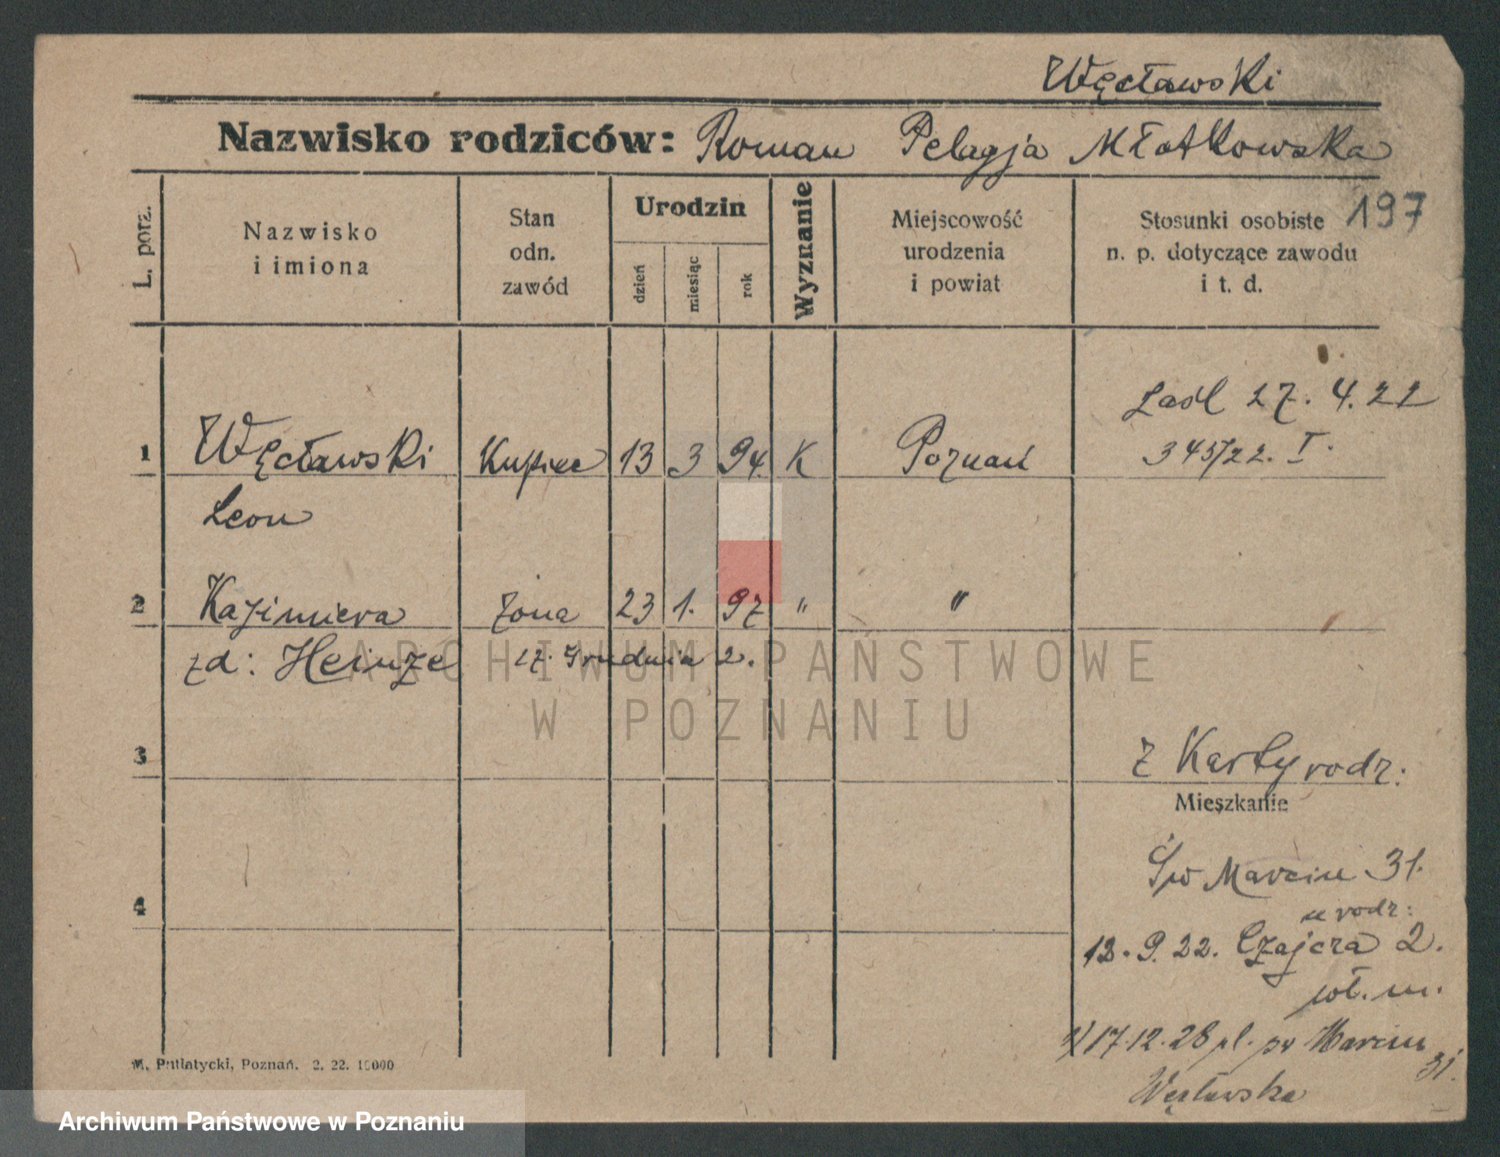 Węcławski
Nazwisko rodziców: Roman Pelagja Młotkowska
197
L. porz.
Nazwisko
i imiona
Stan
odn.
zawód
Urodzin
dzień
miesiąc
rok
Wyznanie
Miejscowość
urodzenia
i powiat
Stosunki osobiste
n. p. dotyczące zawodu
i t. d.
Zaśl 27. 4. 22
345/22. I.
1 Węcławski Kupiec 13 3 94. K Poznań
Leon
2 Kazimiera żona 23 1. 97 " "
zd: Heinze Grudnia 2.
3
z Karty rodz:
Mieszkanie
Św Marcin 31.
u rodz:
4
12. 9. 22. Czajcza 2.
poł. m.
17.12.28 pl. św Marcin
31.
Węcławska
M. Putiatycki, Poznań. 2. 22. 10000
ARCHIWUM PAŃSTWOWE
W POZNANIU
Archiwum Państwowe w Poznaniu